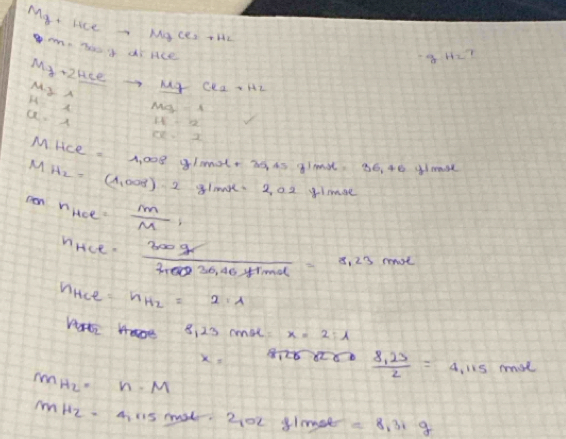 Mg + HCl → MgCl2 + H2
m = 300 g di HCl
- g H2?
Mg + 2HCl → Mg Cl2 + H2
Mg 1 Mg - 1
H - 1 H - 2 ✓
Cl - 1 Cl - 2
M HCl = 1,008 g/mol + 35,45 g/mol = 36,46 g/mol
M H2 = (1,008) · 2 g/mol = 2,02 g/mol
n HCl = m / M ;
n HCl = 300 g / 36,46 g/mol = 8,23 mol
n HCl = n H2 = 2 : 1
8,23 mol : x = 2 : 1
x = 8,23 / 2 = 4,115 mol
m H2 = n · M
m H2 = 4,115 mol · 2,02 g/mol = 8,31 g